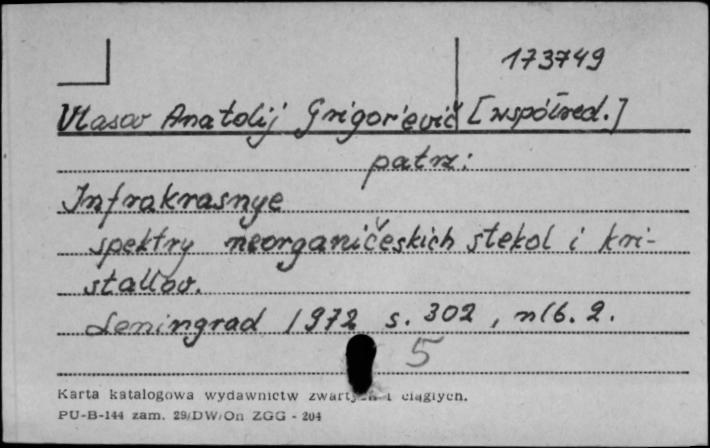 173749
Vlasov Anatolij Grigor'evič [współred.]
patrz:
Infrakrasnye
spektry neorganičeskich stekol i kri-
stallov.
Leningrad 1972 s. 302, nlb. 2.
5
Karta katalogowa wydawnictw zwartych i ciągłych.
PU-B-144 zam. 29/DW/On ZGG - 204